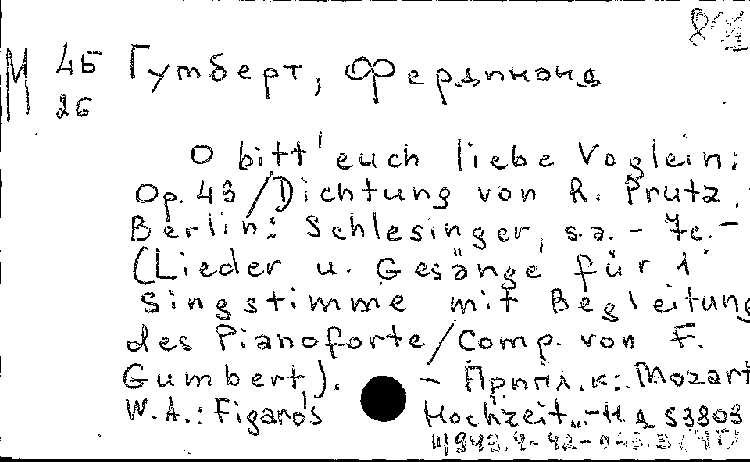 М 45 Гумберт, Фердинанд
26
O bitt'euch liebe Voglein:
Op. 43/Dichtung von R. Prutz.
Berlin: Schlesinger, s.a. - 7c. -
(Lieder u. Gesänge für 1
Singstimme mit Begleitung
des Pianoforte/Comp. von F.
Gumbert). - Припл. к: Mozart
W.A.: Figaro's Hochzeit... - Н д 53803